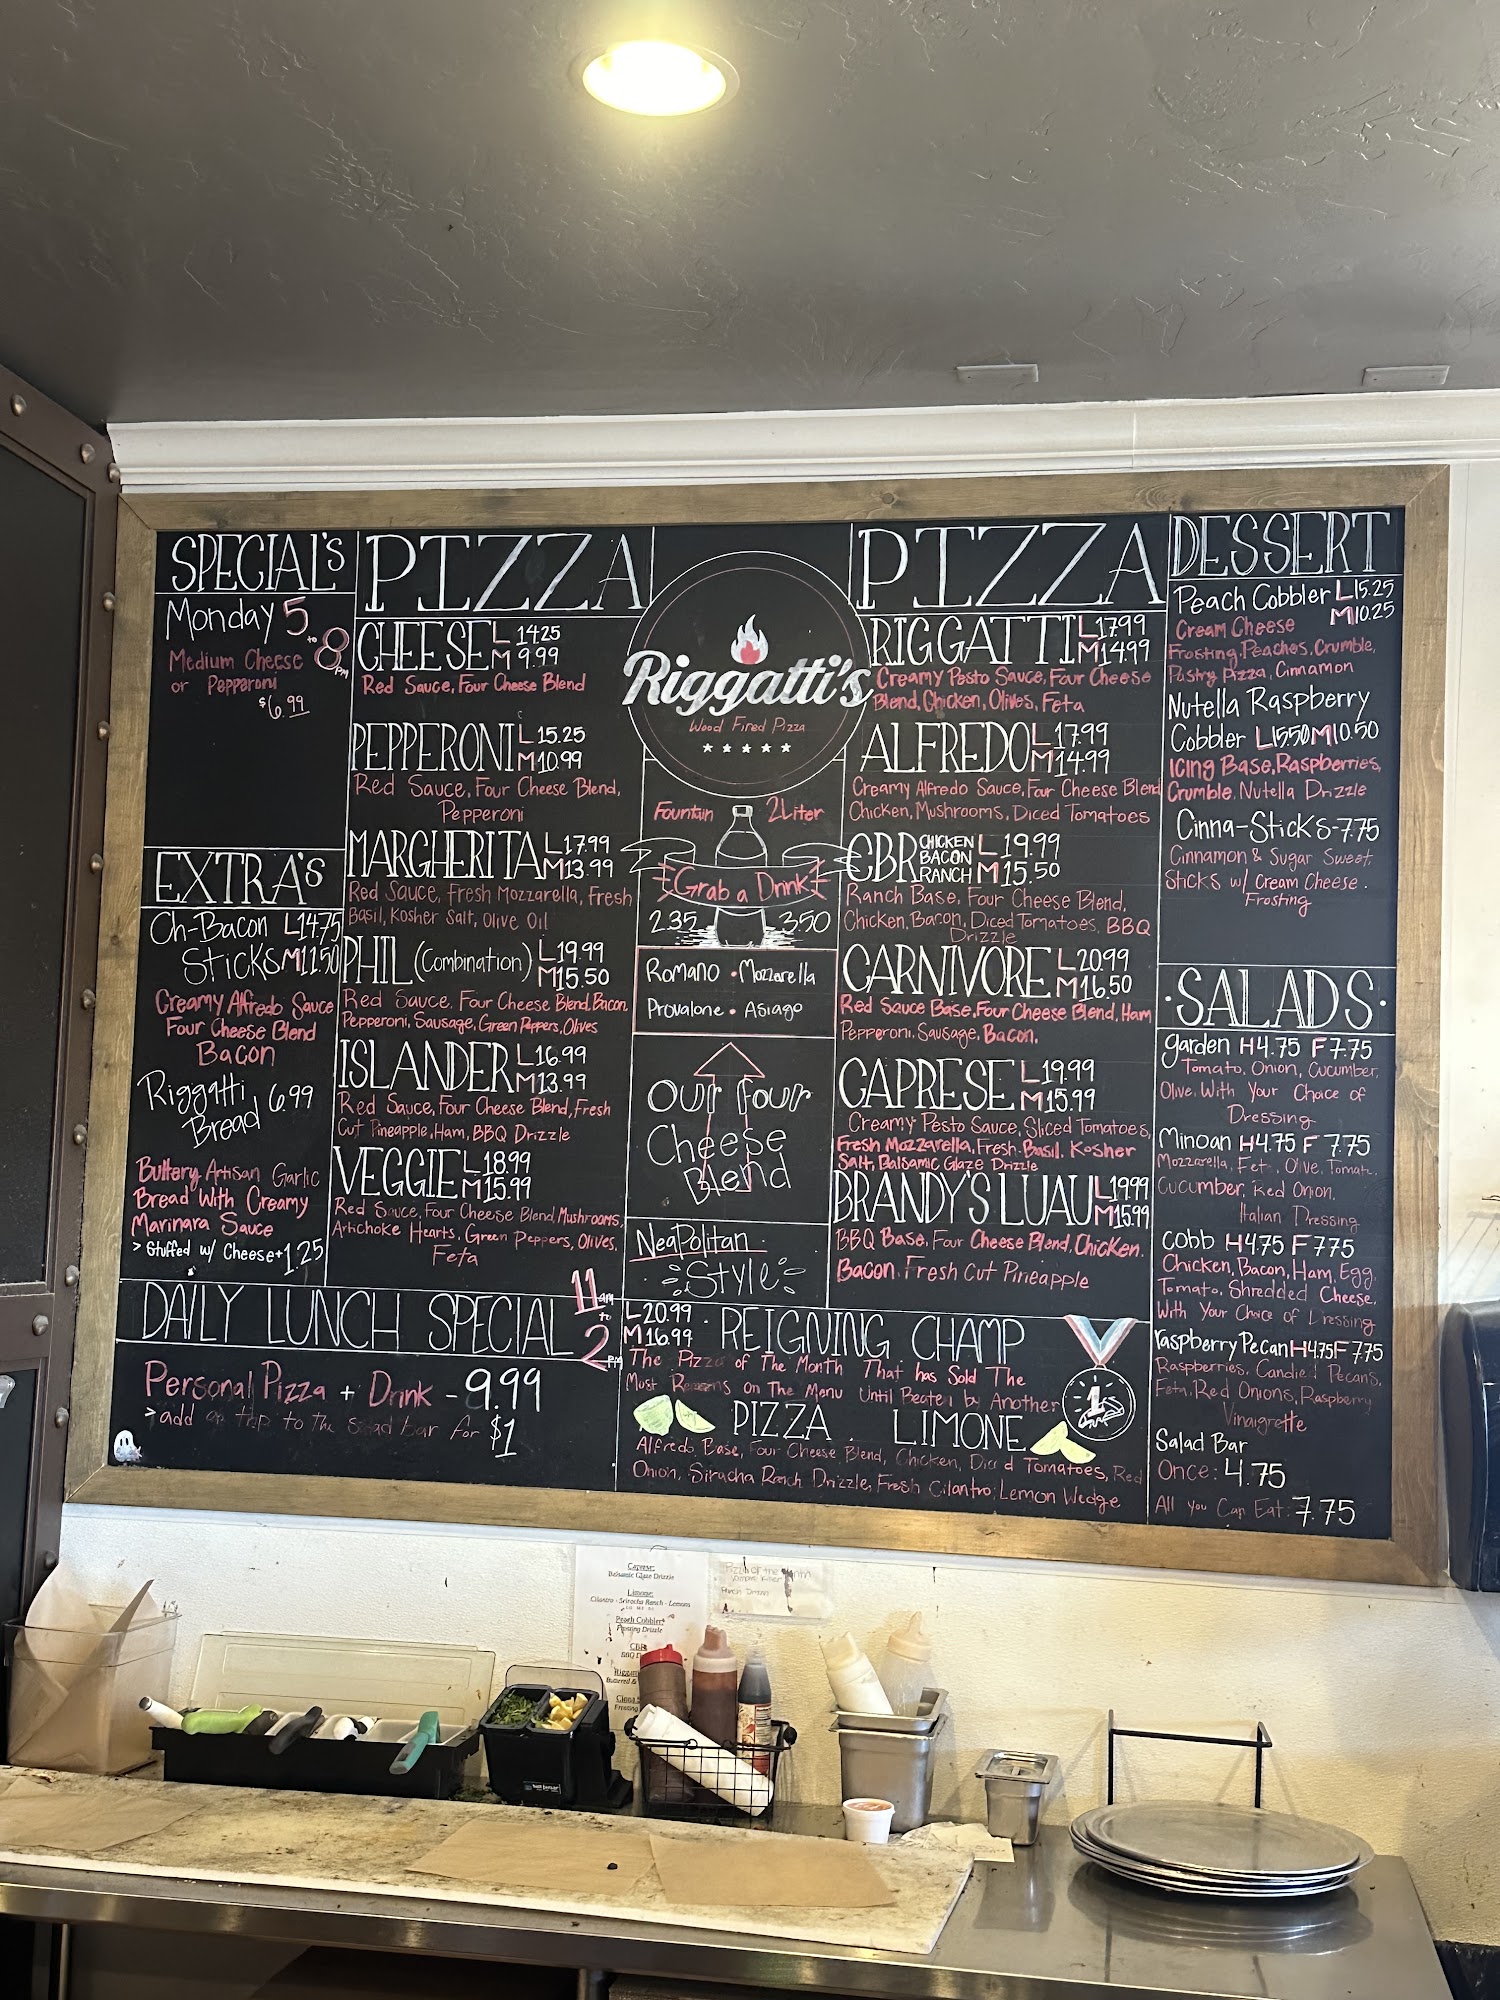 SPECIAL's
Monday 5 to 8 PM
Medium Cheese
or Pepperoni
$6.99
EXTRA's
Ch-Bacon L 14.75
Sticks M 11.50
Creamy Alfredo Sauce
Four Cheese Blend
Bacon
Riggatti 6.99
Bread
Buttery Artisan Garlic
Bread With Creamy
Marinara Sauce
> Stuffed w/ Cheese +1.25
PIZZA
CHEESE L 14.25
M 9.99
Red Sauce, Four Cheese Blend
PEPPERONI L 15.25
M 10.99
Red Sauce, Four Cheese Blend,
Pepperoni
MARGHERITA L 17.99
M 13.99
Red Sauce, Fresh Mozzarella, Fresh
Basil, Kosher Salt, Olive Oil
PHIL (Combination) L 19.99
M 15.50
Red Sauce, Four Cheese Blend, Bacon,
Pepperoni, Sausage, Green Peppers, Olives
ISLANDER L 16.99
M 13.99
Red Sauce, Four Cheese Blend, Fresh
Cut Pineapple, Ham, BBQ Drizzle
VEGGIE L 18.99
M 15.99
Red Sauce, Four Cheese Blend, Mushrooms,
Artichoke Hearts, Green Peppers, Olives,
Feta
DAILY LUNCH SPECIAL 11am to 2PM
Personal Pizza + Drink - 9.99
> add on trip to the salad bar for $1
Riggatti's
Wood Fired Pizza
Fountain 2Liter
Grab a Drink
2.35 3.50
Romano • Mozzarella
Provalone • Asiago
Our four
Cheese
Blend
Neapolitan
Style
PIZZA
RIGGATTI L 17.99
M 14.99
Creamy Pesto Sauce, Four Cheese
Blend, Chicken, Olives, Feta
ALFREDO L 17.99
M 14.99
Creamy Alfredo Sauce, Four Cheese Blend
Chicken, Mushrooms, Diced Tomatoes
CBR CHICKEN BACON RANCH L 19.99
M 15.50
Ranch Base, Four Cheese Blend,
Chicken, Bacon, Diced Tomatoes, BBQ
Drizzle
CARNIVORE L 20.99
M 16.50
Red Sauce Base, Four Cheese Blend, Ham
Pepperoni, Sausage, Bacon.
CAPRESE L 19.99
M 15.99
Creamy Pesto Sauce, Sliced Tomatoes,
Fresh Mozzarella, Fresh Basil, Kosher
Salt, Balsamic Glaze Drizzle
BRANDY'S LUAU L 19.99
M 15.99
BBQ Base, Four Cheese Blend, Chicken,
Bacon, Fresh Cut Pineapple
L 20.99
M 16.99 • REIGNING CHAMP
The Pizza of The Month That has Sold The
Most Reasons on The Menu Until Beaten by Another
1
PIZZA LIMONE
Alfredo Base, Four Cheese Blend, Chicken, Diced Tomatoes, Red
Onion, Siracha Ranch Drizzle, Fresh Cilantro, Lemon Wedge
DESSERT
Peach Cobbler L 15.25
M 10.25
Cream Cheese
Frosting, Peaches, Crumble,
Pastry Pizza, Cinnamon
Nutella Raspberry
Cobbler L 15.50 M 10.50
Icing Base, Raspberries,
Crumble, Nutella Drizzle
Cinna-Sticks-7.75
Cinnamon & Sugar Sweet
Sticks w/ Cream Cheese
Frosting
• SALADS •
garden H 4.75 F 7.75
Tomato, Onion, Cucumber,
Olive, With Your Choice of
Dressing
Minoan H 4.75 F 7.75
Mozzarella, Fet, Olive, Tomat,
Cucumber, Red Onion,
Italian Dressing
cobb H 4.75 F 7.75
Chicken, Bacon, Ham, Egg,
Tomato, Shredded Cheese,
With Your Choice of Dressing
raspberry Pecan H 4.75 F 7.75
Raspberries, Candied Pecans,
Feta, Red Onions, Raspberry
Vinaigrette
Salad Bar
Once: 4.75
All you Can Eat: 7.75
Caprese:
Balsamic Glaze Drizzle
Limone:
Cilantro - Sriracha Ranch - Lemons
Peach Cobbler:
Frosting Drizzle
CBR
Pizza of the